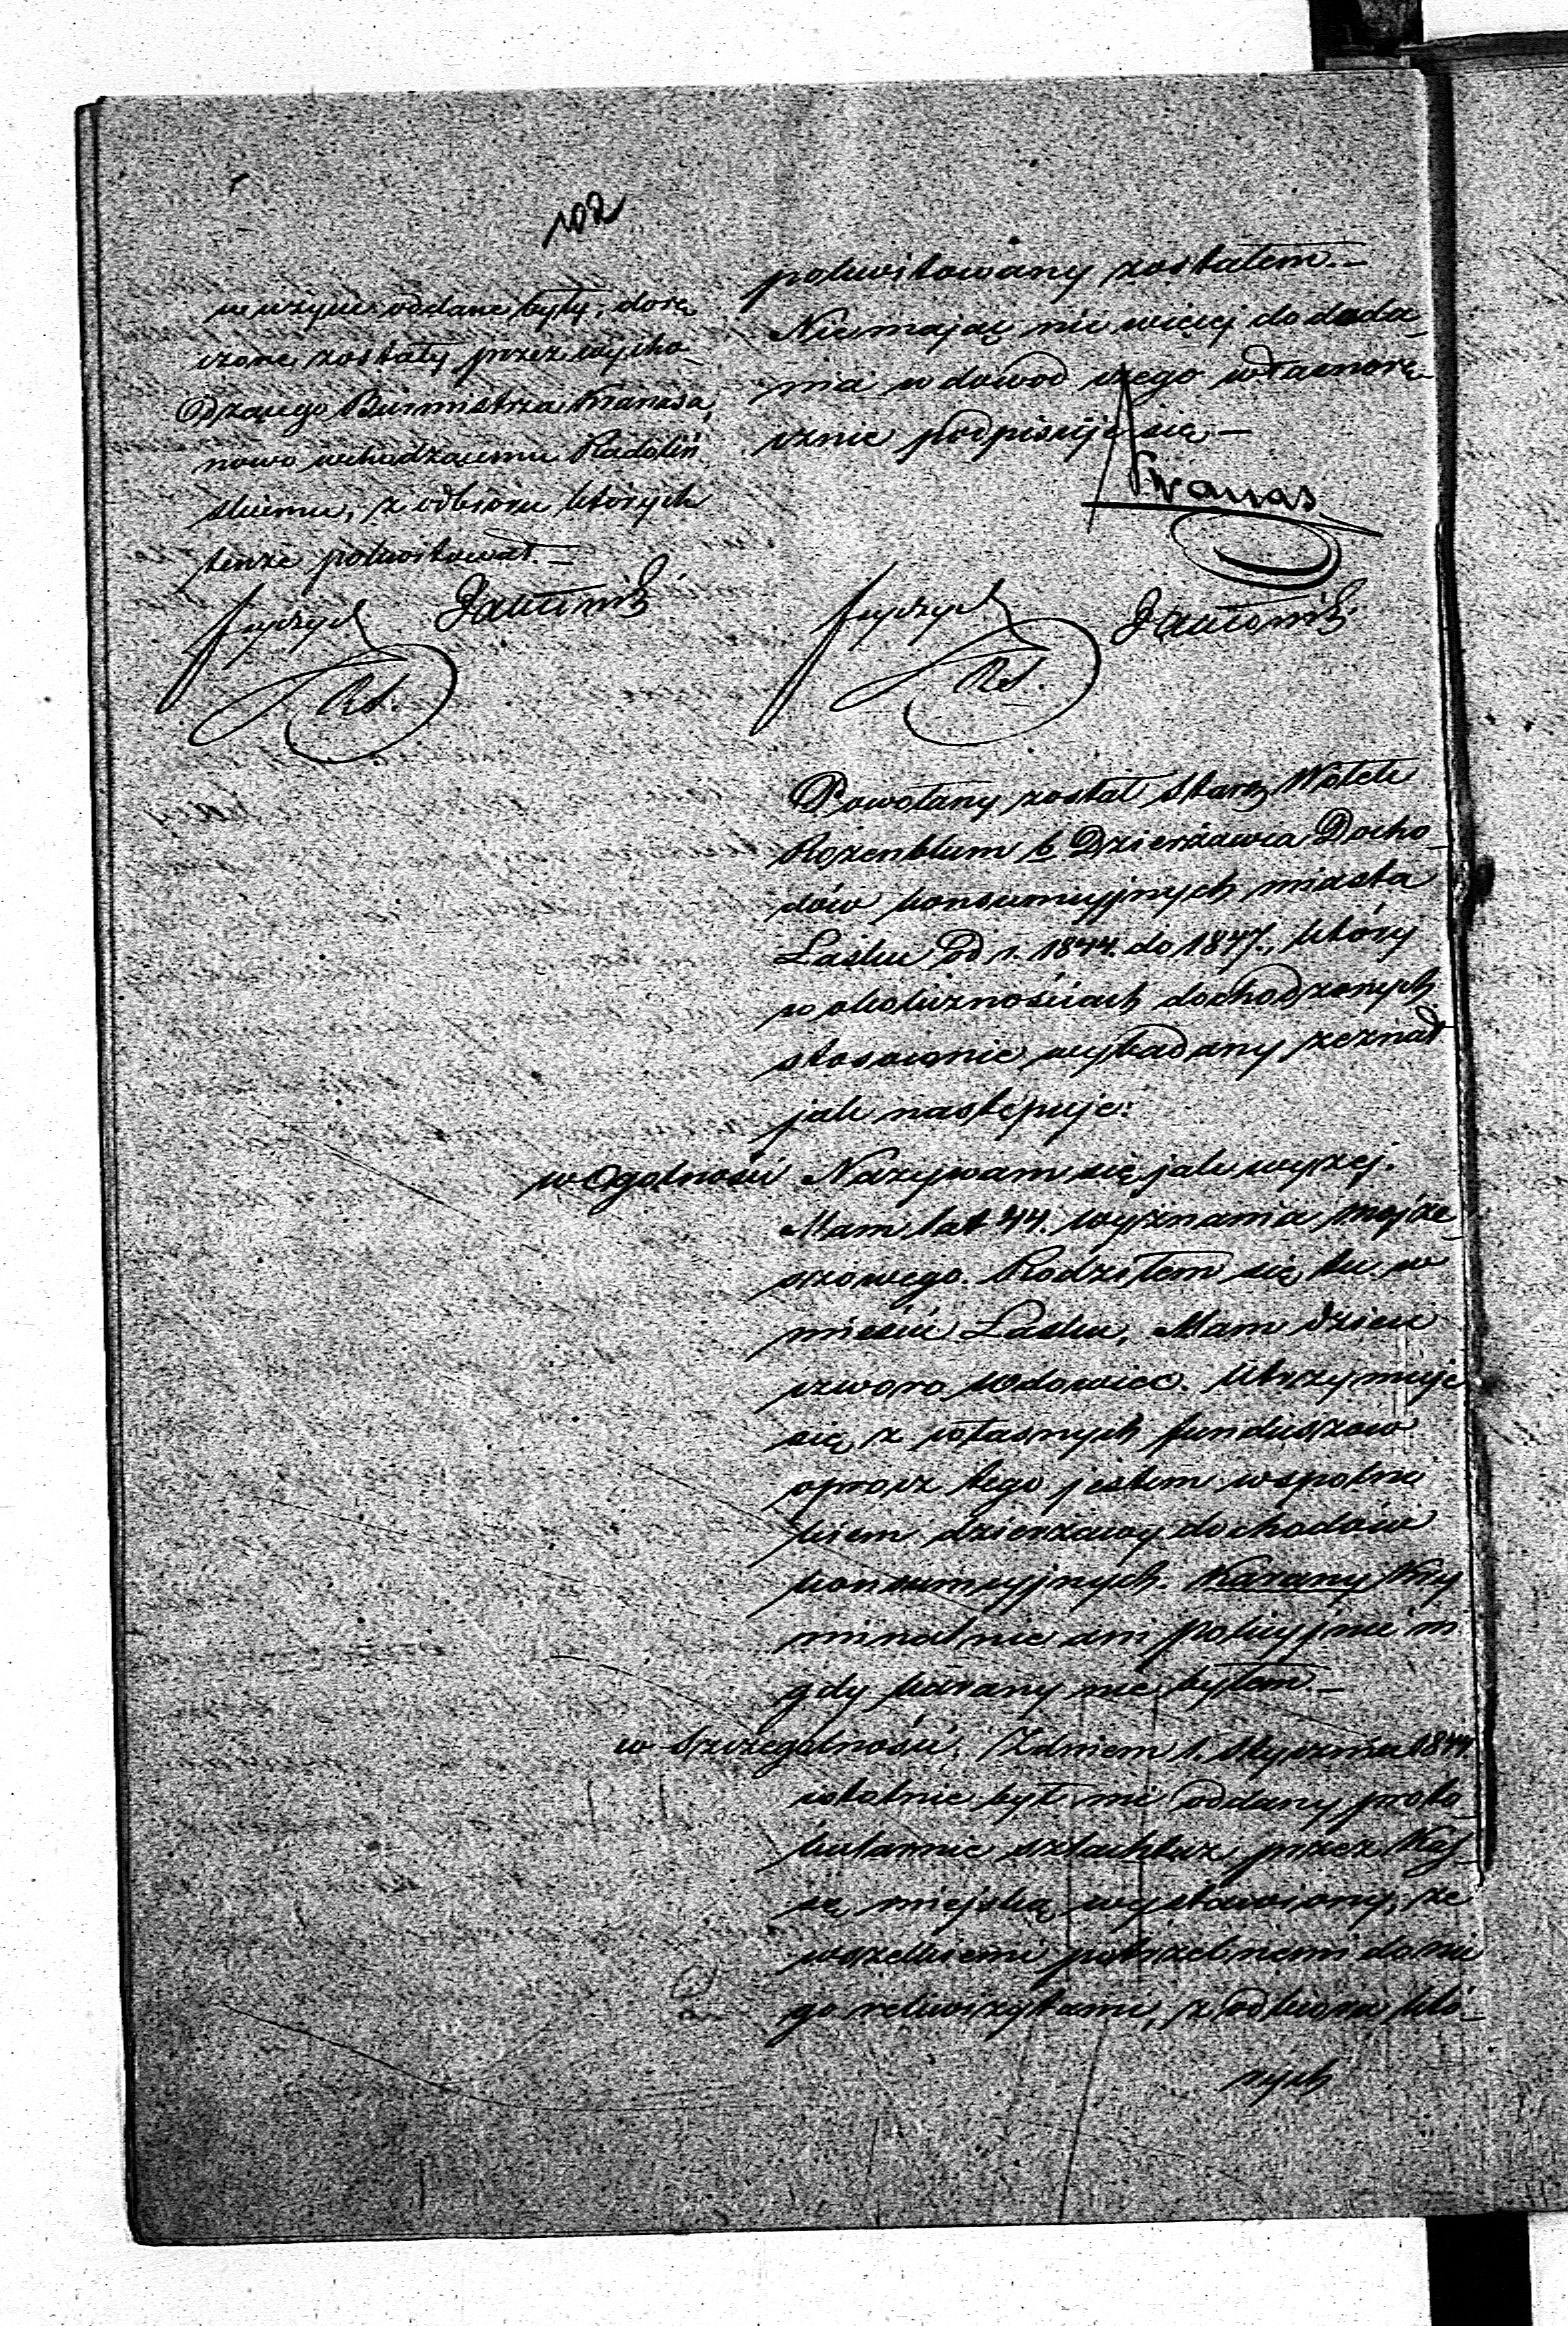 102
w użyciu oddane były, dorę
czone zostały przez wycho_
dzącego Burmistrza Kranasa,
nowo wchodzącemu Radoliń
skiemu, z odbioru których
tenże pokwitował.—
Rd.
pokwitowany zostałem.—
Nie mając nic więcej do doda_
nia w dowód czego własnorę_
cznie podpisuję się—
Kranas
Rd.
Powołany został Starz. Wołek
Rozenblum b Dzierżawca Docho_
dów konsumcyjnych miasta
Łasku od r. 1844. do 1847., który
w okolicznościach dochodzonych
stosownie wybadany zeznał
jak następuje:
w Ogolności Nazywam się jak wyżej.
Mam lat 44. wyznania mojże_
szowego. Rodziłem się tu w
mieście Łasku, Mam dzieci
czworo wdowiec. Utrzymuję
się z własnych funduszow
oprocz tego jestem wspolni
kiem dzierżawy dochodów
konsumcyjnych. Karany Kry
minalnie ani policyjnie ni
gdy karany nie byłem.—
w Szczegolności. Z dniem 1. Stycznia 1844
istotnie był mi oddany proto_
kularnie szlachtuz przez Kas_
sę miejską wystawiony, ze
wszelkiemi potrzebnemi do nie
go rekwizytami, z odbioru któ_
rych